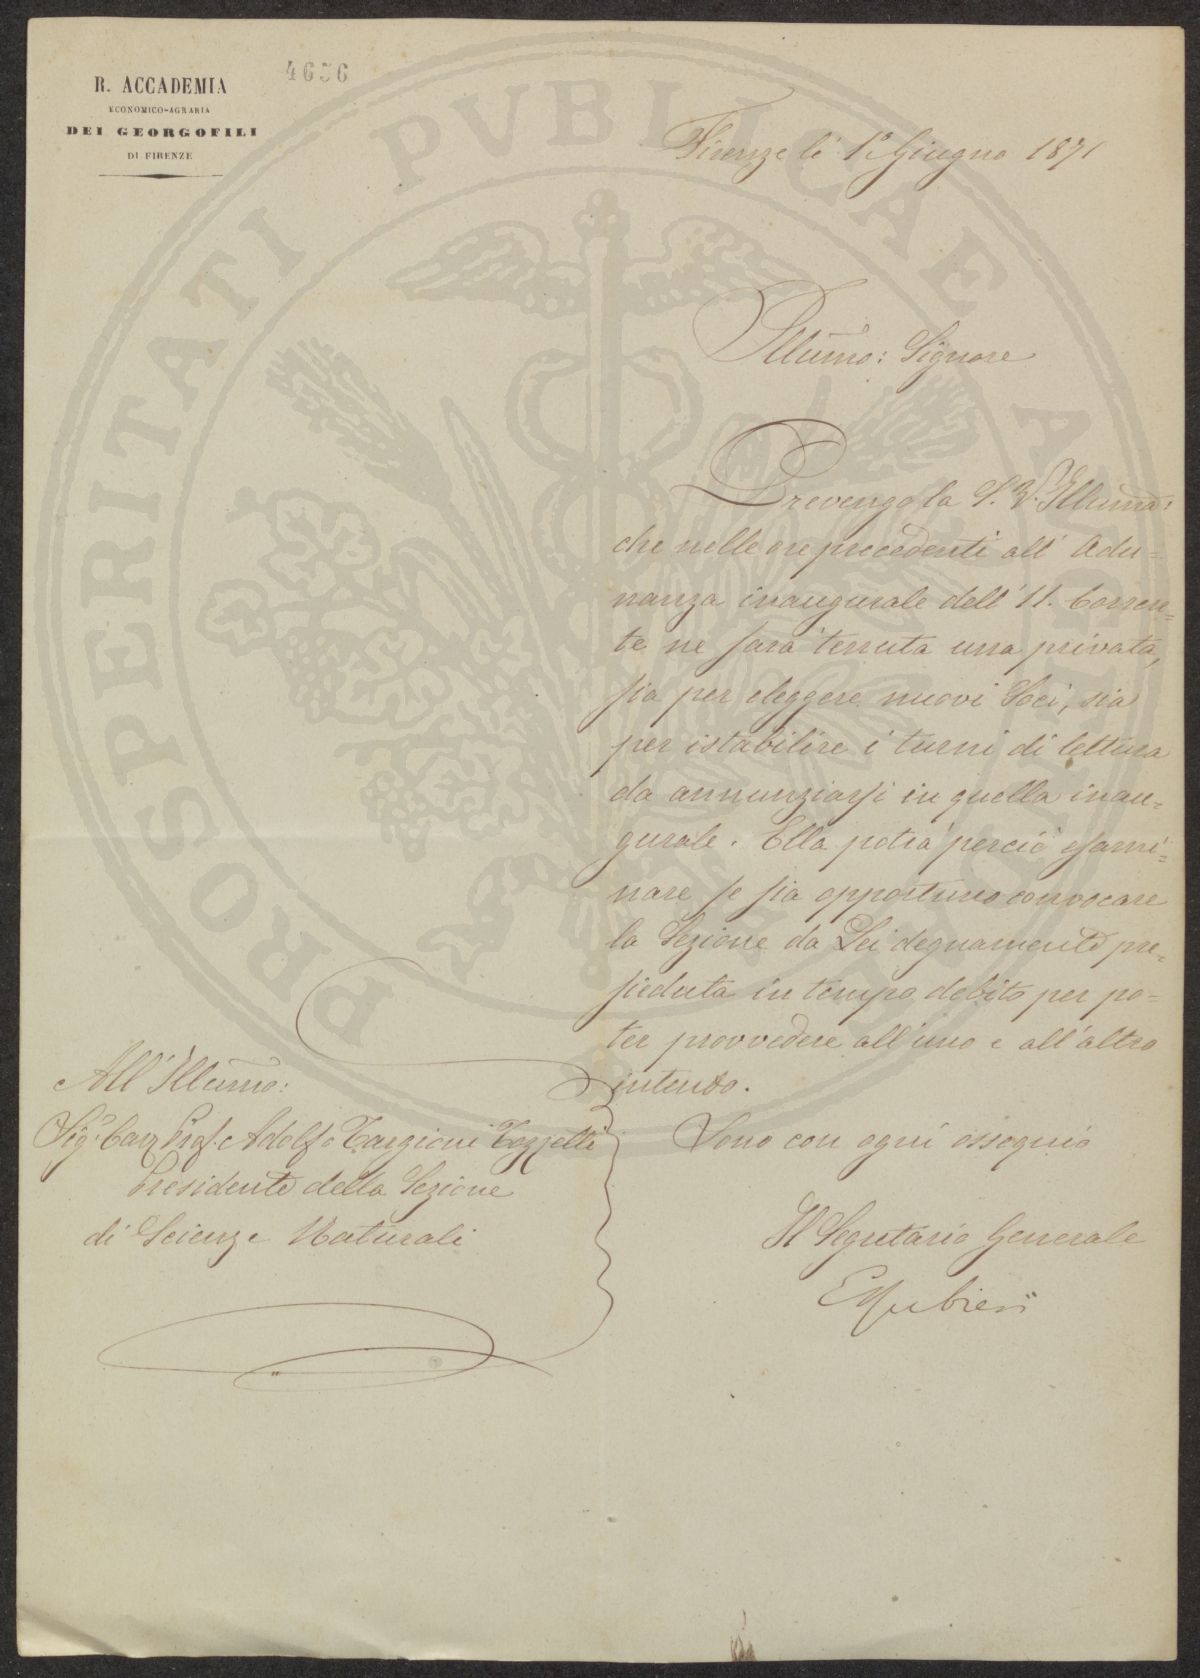 R. ACCADEMIA
ECONOMICO-AGRARIA
DEI GEORGOFILI
DI FIRENZE
4656
Firenze li 1° Giugno 1871
Illumo: Signore
Prevengo la S. V. Illuma:
che nelle ore precedenti all' Adu-
nanza inaugurale dell' 11. Corren-
te ne sarà tenuta una privata,
sia per eleggere nuovi Soci, sia
per istabilire i turni di lettura
da annunziarsi in quella inau-
gurale. Ella potrà perciò esami-
nare se sia opportuno convocare
la Sezione da Lei degnamente pre-
sieduta in tempo debito per po-
ter provvedere all'uno e all'altro
intento.
Sono con ogni ossequio
Il Segretario Generale
All' Illumo:
Sigr. Cav. Prof. Adolfo Targioni Tozzetti
Presidente della Sezione
di Scienze Naturali
PROSPERITATI PVBLICAE AVGENDAE